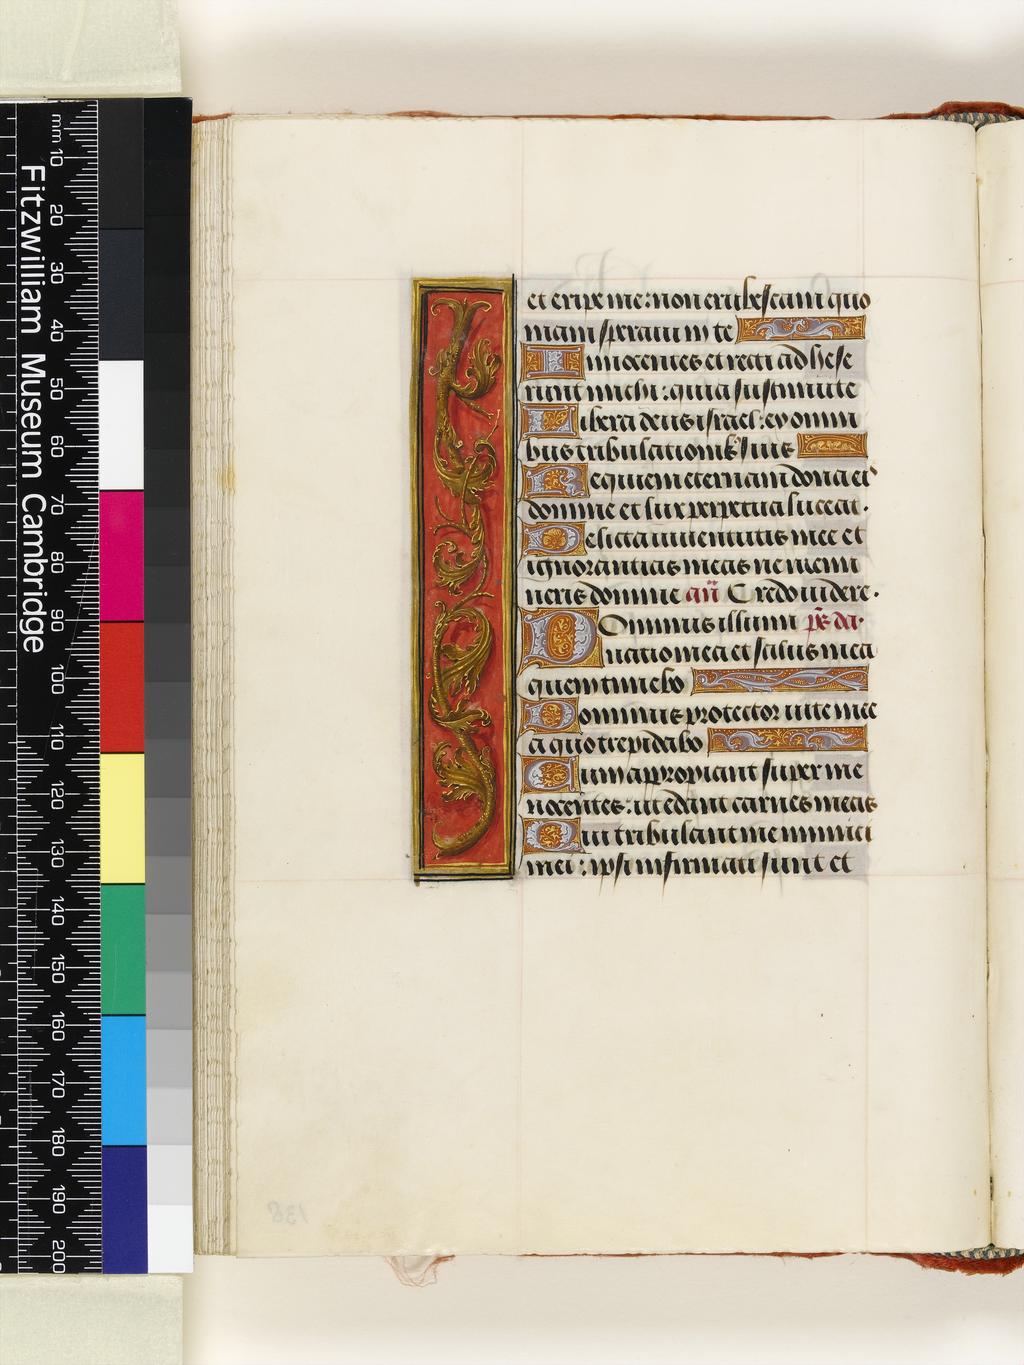 et eripe me: non erubescam quo
niam speraui in te
Innocentes et recti adhese
runt michi: quia sustinui te
Libera deus israel: ex omni
bus tribulationib9 suis
Requiem eternam dona eis
domine et lux perpetua luceat.
Delicta iuuentutis mee et
ignorantias meas ne memi
neris domine añ Credo videre.
Dominus illumi ps da.
natio mea et salus mea
quem timebo
Dominus protector uite mee
a quo trepidabo
Dum appropiant super me
nocentes: ut edant carnes meas
Qui tribulant me inimici
mei: ipsi infirmati sunt et
136
Fitzwilliam Museum Cambridge
mm 10 20 30 40 50 60 70 80 90 100 110 120 130 140 150 160 170 180 190 200